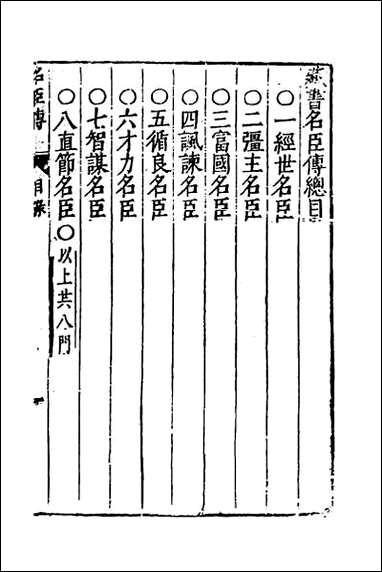 藏書名臣傳總目
○一經世名臣
○二彊主名臣
○三富國名臣
○四諷諫名臣
○五循良名臣
○六才力名臣
○七智謀名臣
○八直節名臣○以上共八門
名臣傳 目錄